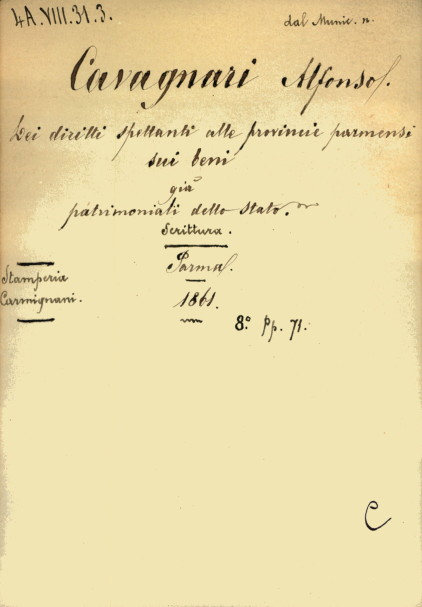 4A.VIII.31.3.
dal Munic. n.
Cavagnari Alfonso.
Dei diritti spettanti alle provincie parmensi
sui beni
già
patrimoniali dello stato.
Scrittura.
Parma.
Stamperia
Carmignani.
1861.
8.° pp. 71.
C